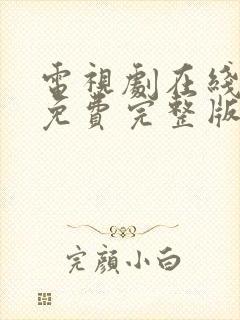 電視劇在綫
免費完整版
完顔小白